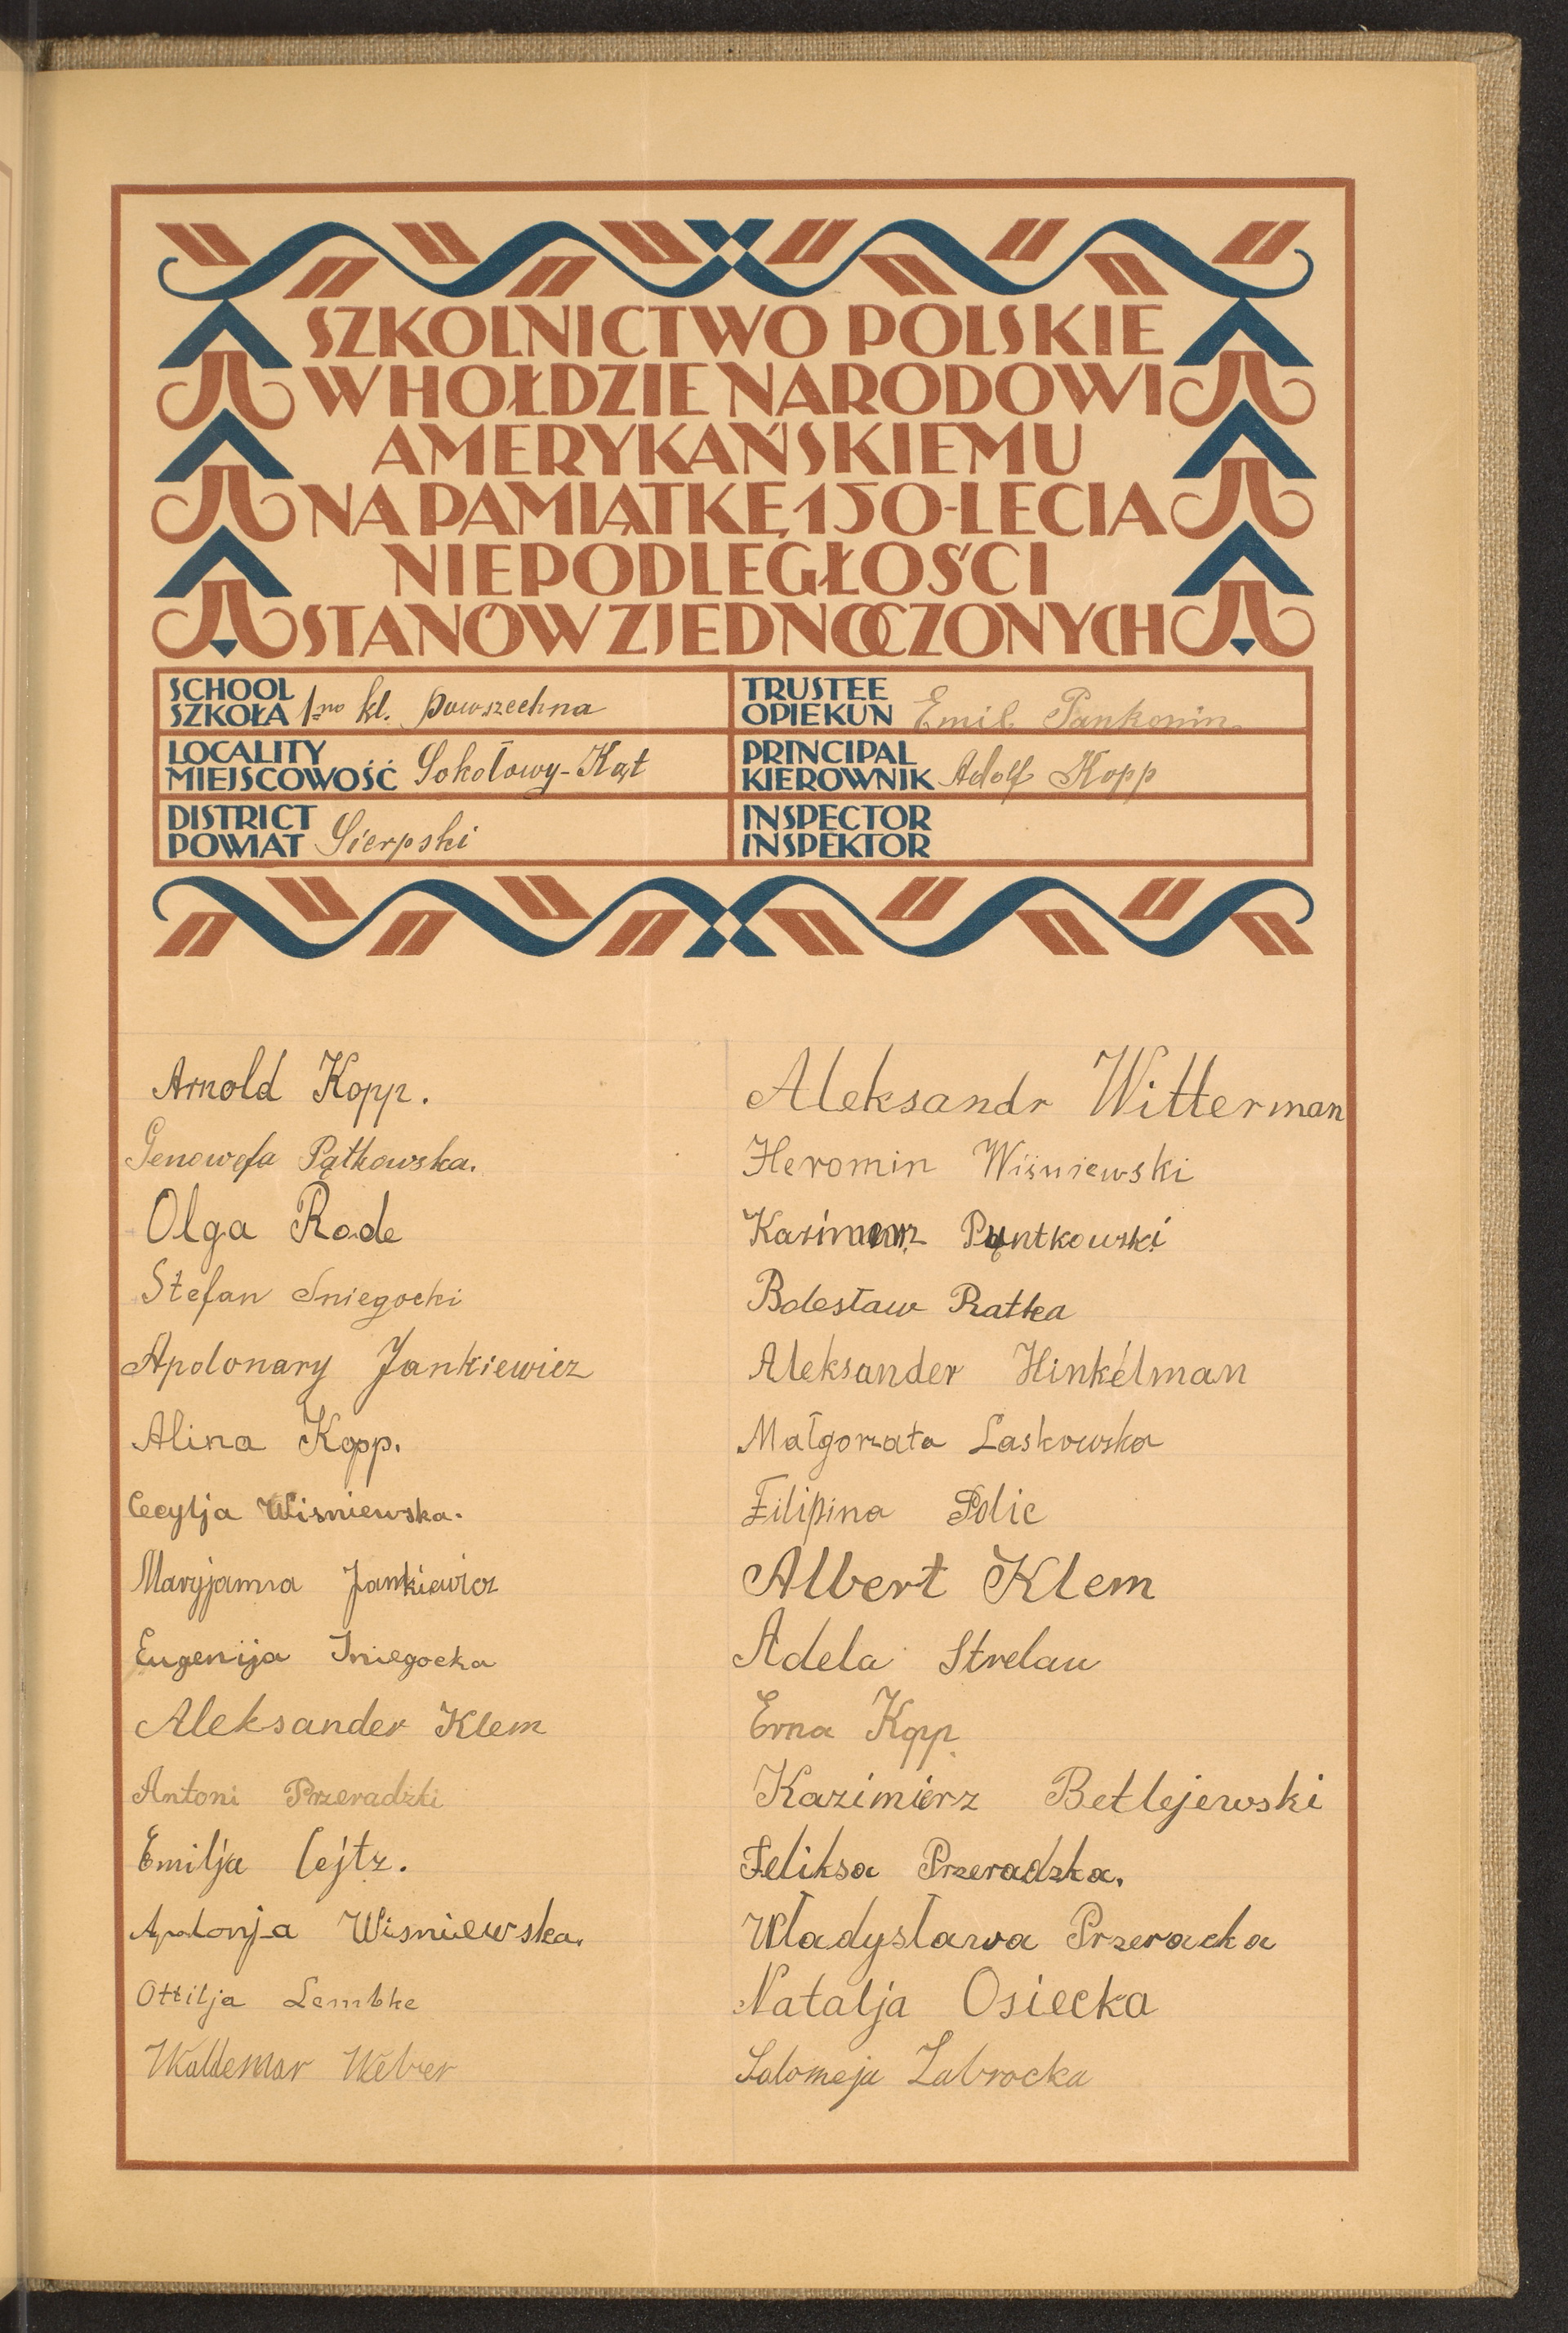 SZKOLNICTWO POLSKIE
W HOŁDZIE NARODOWI
AMERYKAŃSKIEMU
NA PAMIĄTKĘ 150-LECIA
NIEPODLEGŁOŚCI
STANÓW ZJEDNOCZONYCH
SCHOOL
SZKOŁA 1no kl. powszechna
TRUSTEE
OPIEKUN Emil Pankonin
LOCALITY
MIEJSCOWOŚĆ Sokołowy-Kąt
PRINCIPAL
KIEROWNIK Adolf Kopp
DISTRICT
POWIAT Sierpski
INSPECTOR
INSPEKTOR
Arnold Kopp.
Genowefa Pątkowska.
Olga Rode
Stefan Sniegocki
Apolonary Jankiewicz
Alina Kopp.
Cecylja Wisniewska.
Maryjanna Jankiewicz
Eugenija Sniegocka
Aleksander Klem
Antoni Przeradzki
Emilja Cejtz.
Apolonja Wisniewska.
Ottilja Lembke
Waldemar Weber
Aleksandr Witterman
Heromin Wiśniewski
Kazimierz Puntkowski
Bolesław Ratka
Aleksander Hinkelman
Małgorzata Laskowska
Filipina Polic
Albert Klem
Adela Strelau
Erna Kopp
Kazimierz Betlejewski
Feliksa Przeradzka.
Władysława Przeracka
Natalja Osiecka
Salomeja Zabrocka